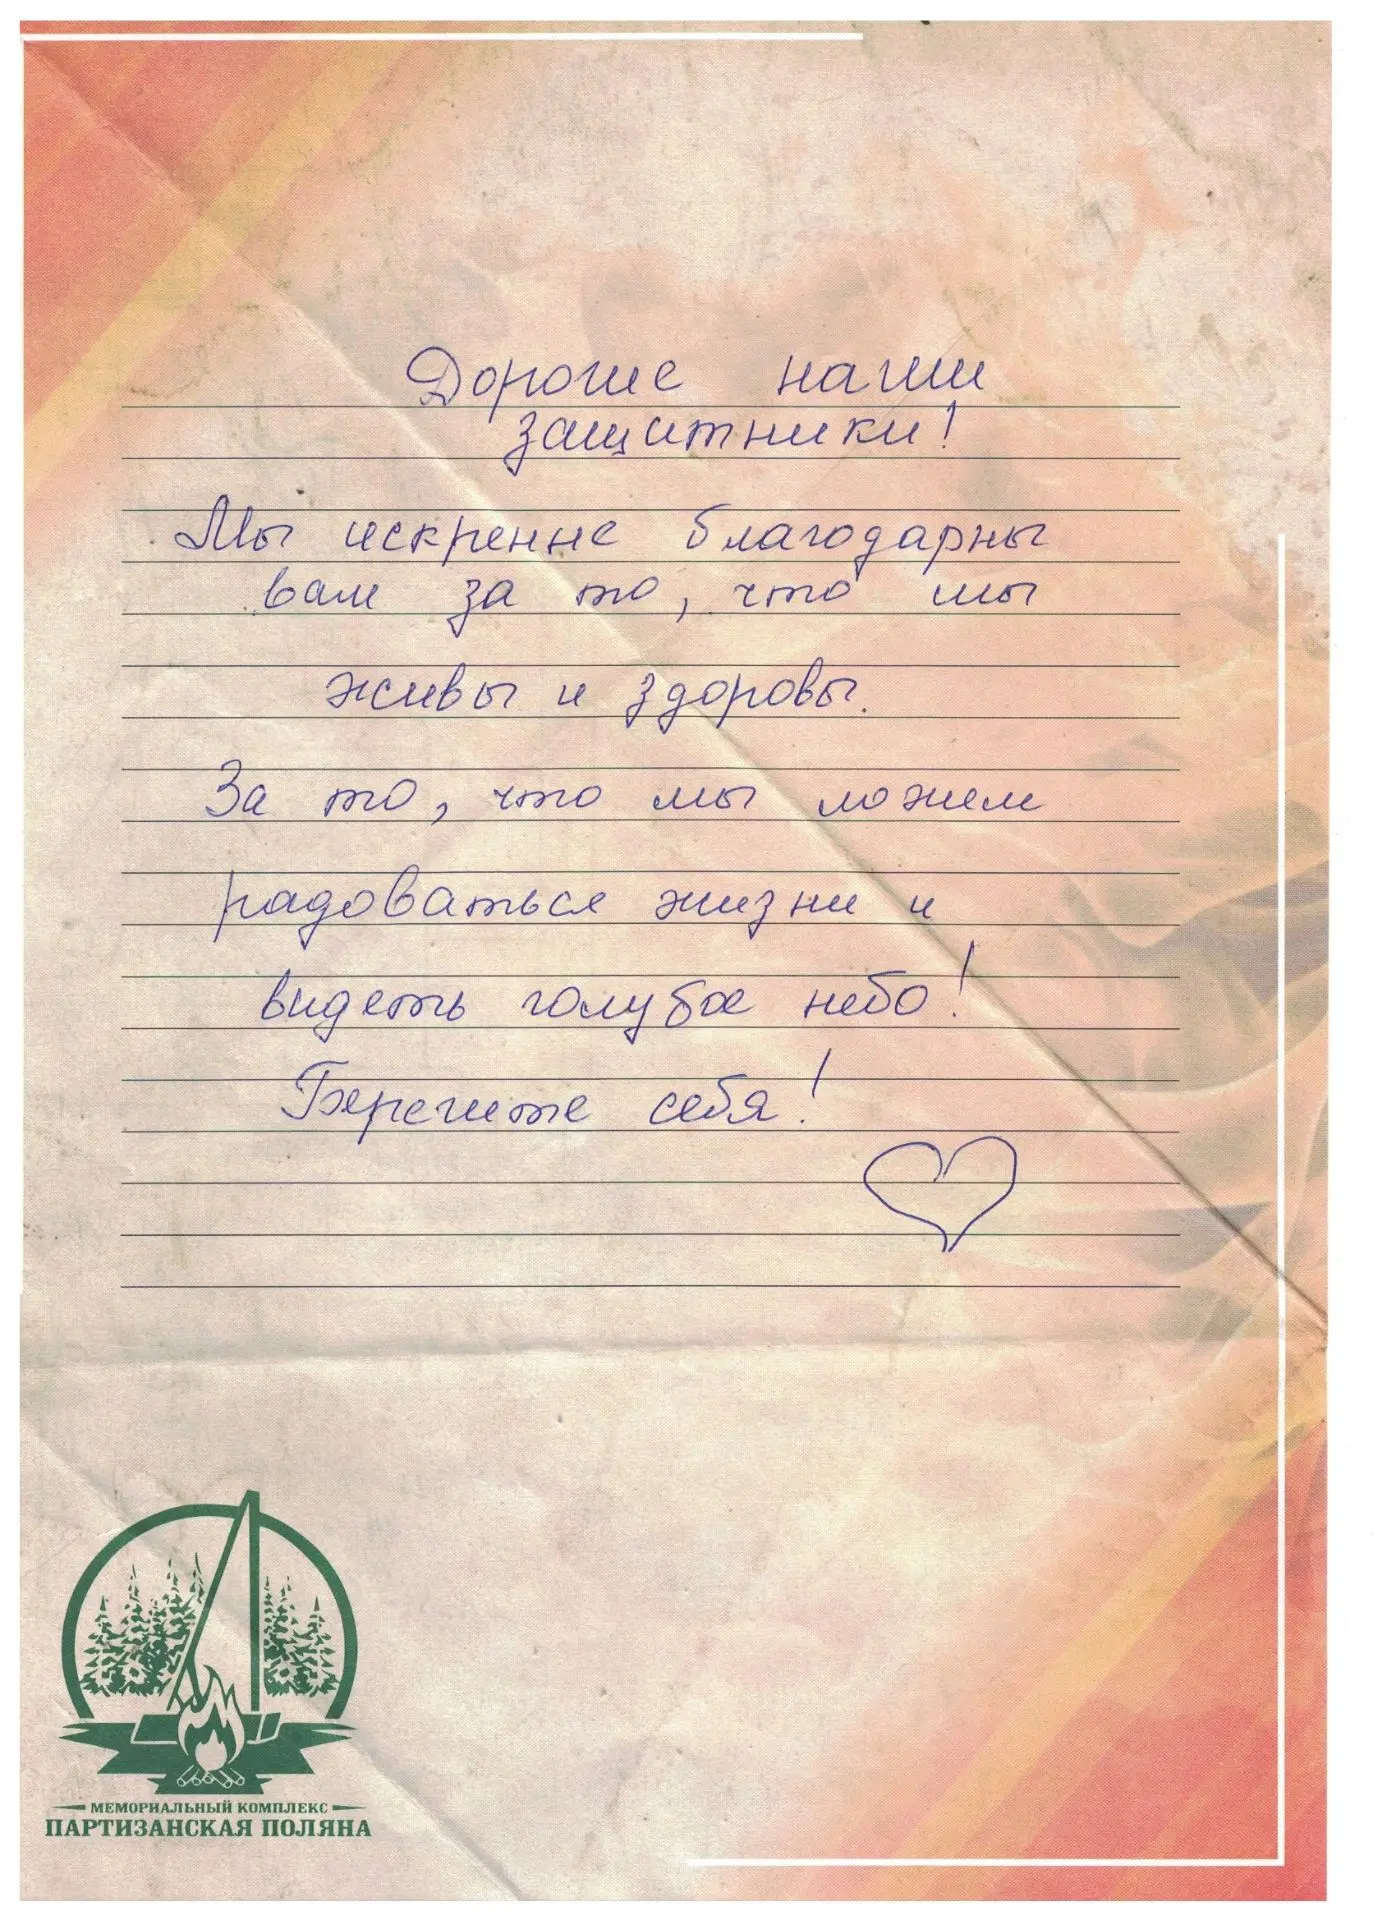 Дорогие наши
защитники!
Мы искренне благодарны
вам за то, что мы
живы и здоровы.
За то, что мы можем
радоваться жизни и
видеть голубое небо!
Берегите себя!
МЕМОРИАЛЬНЫЙ КОМПЛЕКС
ПАРТИЗАНСКАЯ ПОЛЯНА